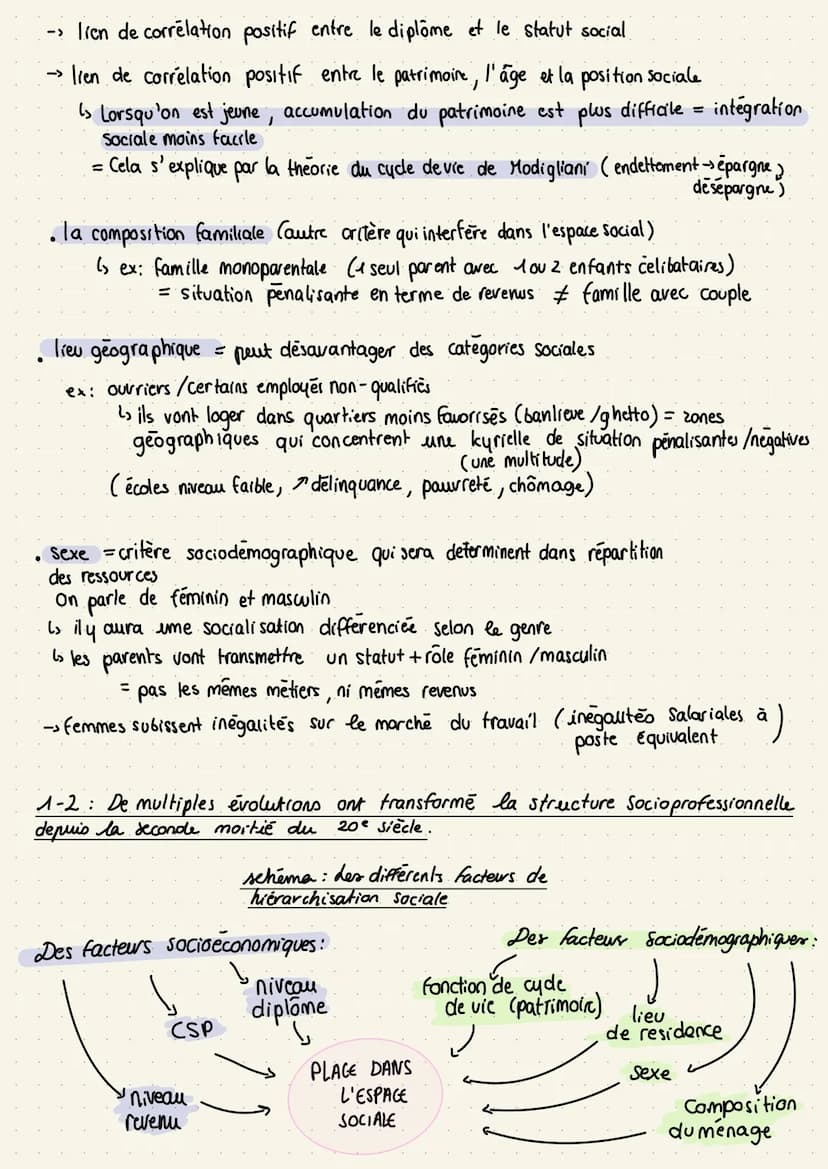 -> lien de corrélation positif entre le diplôme et le statut social
-> lien de corrélation positif entre le patrimoine, l'âge et la position sociale
↳ Lorsqu'on est jeune, accumulation du patrimoine est plus difficile = intégration
sociale moins facile
= Cela s'explique par la théorie du cycle de vie de Modigliani (endettement → épargne,
désépargne)
. la composition familiale (autre critère qui interfère dans l'espace social)
↳ ex: famille monoparentale (1 seul parent avec 1 ou 2 enfants célibataires)
= situation pénalisante en terme de revenus ≠ famille avec couple
. lieu géographique = peut désavantager des catégories sociales
ex: ouvriers / certains employés non-qualifiés
↳ ils vont loger dans quartiers moins favorisés (banlieue/ghetto) = zones
géographiques qui concentrent une kyrielle de situation pénalisantes/négatives
(une multitude)
(écoles niveau faible, ↗ délinquance, pauvreté, chômage)
. sexe = critère sociodémographique qui sera determinent dans répartition
des ressources
On parle de féminin et masculin
↳ il y aura une socialisation différenciée selon le genre
↳ les parents vont transmettre un statut + rôle féminin / masculin
= pas les mêmes métiers, ni mêmes revenus
-> femmes subissent inégalités sur le marché du travail (inégalités salariales à
poste équivalent)
1-2 : De multiples évolutions ont transformé la structure socioprofessionnelle
depuis la seconde moitié du 20e siècle.
schéma : des différents facteurs de
hiérarchisation sociale
Des facteurs socioéconomiques :
niveau
diplôme
CSP
niveau
revenu
PLACE DANS
L'ESPACE
SOCIALE
Des facteurs sociodémographiques :
fonction de cycle
de vie (patrimoine)
lieu
de residance
sexe
Composition
du ménage